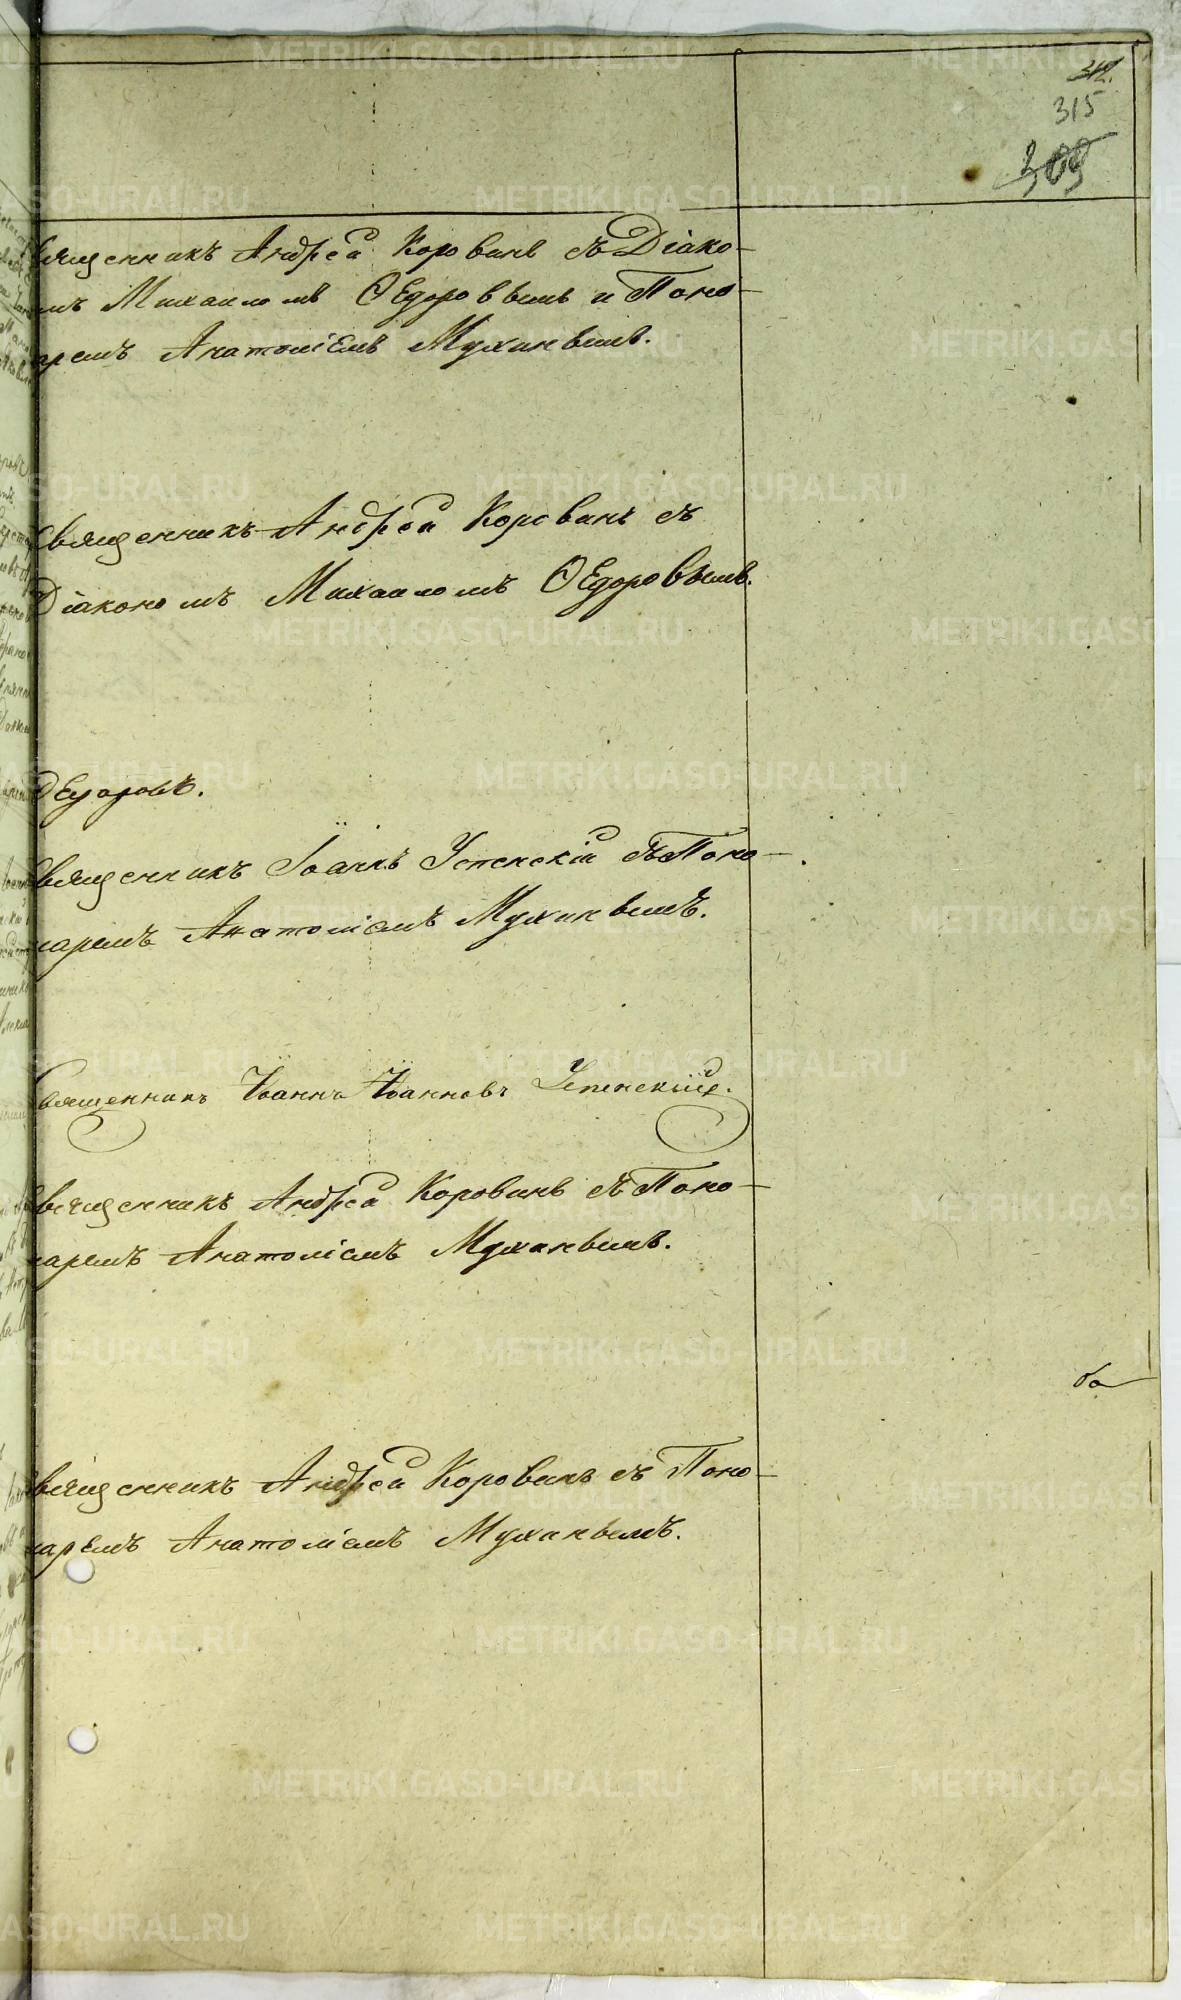 312.
315
309
вященникъ Андрей Коровинъ съ Діако-
мъ Михаиломъ Ѳедоровымъ и Поно-
аремъ Анатоліемъ Мухинымъ.
Священникъ Андрей Коровинъ съ
Діакономъ Михаиломъ Ѳедоровымъ.
Ѳедоровъ.
Священникъ Іоаннъ Успенскій съ Поно-
аремъ Анатоліемъ Мухинымъ.
Священникъ Іоаннъ Іоанновъ Успенскій.
вященникъ Андрей Коровинъ съ Поно-
аремъ Анатоліемъ Мухинымъ.
вященникъ Андрей Коровинъ съ Поно-
аремъ Анатоліемъ Мухинымъ.
METRIKI.GASO-URAL.RU